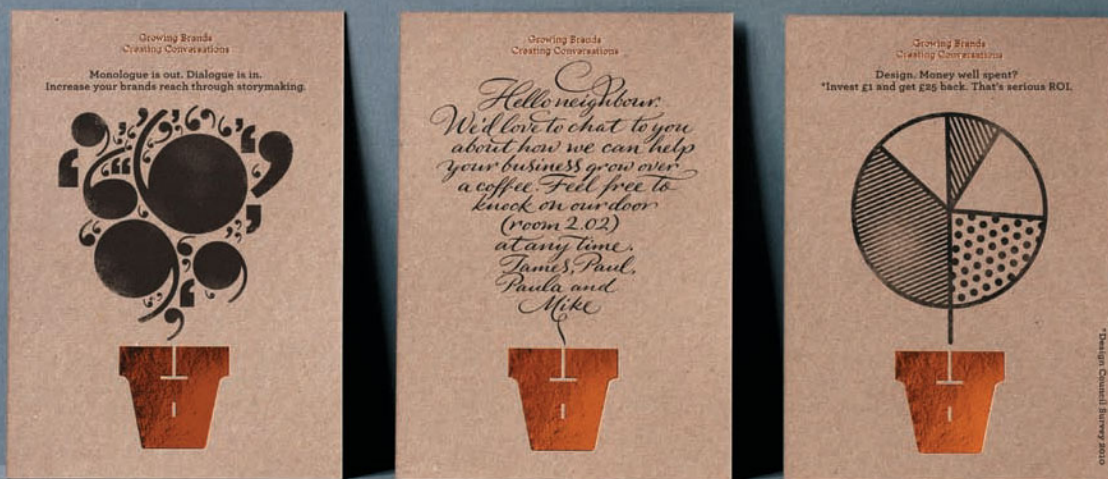 Growing Brands
Creating Conversations
Monologue is out. Dialogue is in.
Increase your brands reach through storymaking.
Growing Brands
Creating Conversations
Hello neighbour.
We'd love to chat to you
about how we can help
your business grow over
a coffee. Feel free to
knock on our door
(room 2.02)
at any time.
James, Paul,
Paula and
Mike
Growing Brands
Creating Conversations
Design. Money well spent?
*Invest £1 and get £25 back. That's serious ROI.
*Design Council Survey 2010